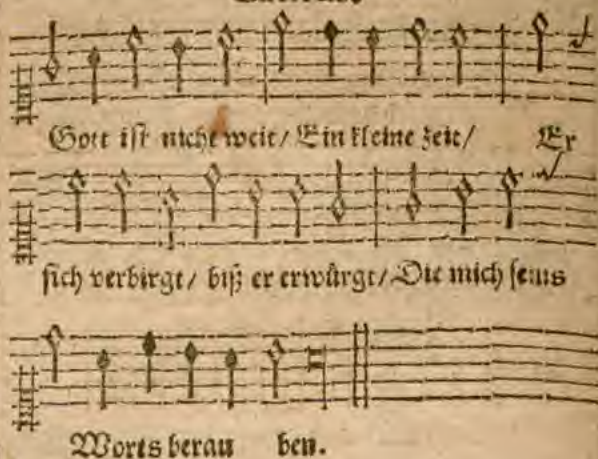 Gott ist nicht weit/ Ein kleine zeit/ Er
sich verbirgt/ biß er erwürgt/ Die mich seins
Worts berau ben.